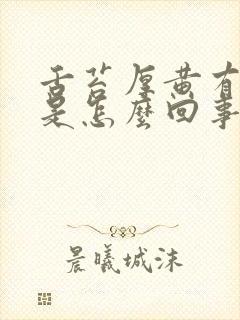 舌苔厚黄有
是怎麼回事
晨曦城沫